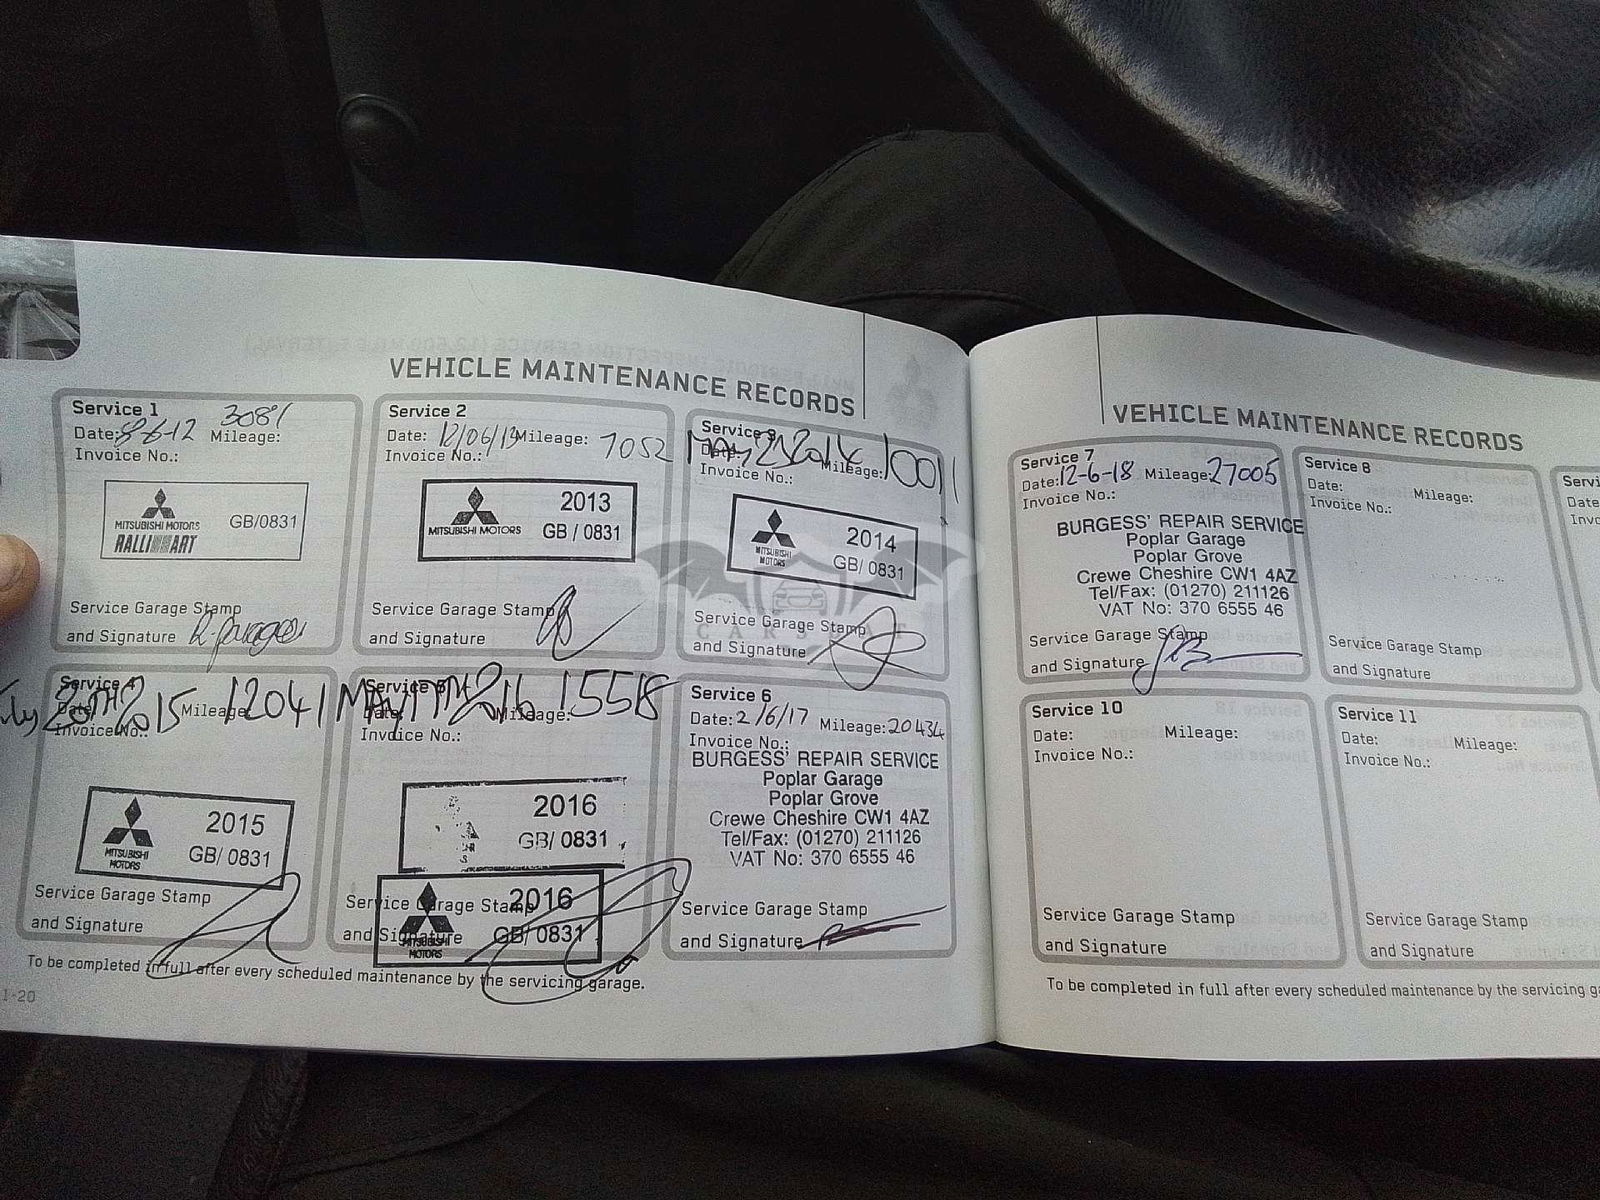 VEHICLE MAINTENANCE RECORDS
Service 1
3081
Date: 8-6-12 Mileage:
Invoice No.:
MITSUBISHI MOTORS
RALLIART
GB/0831
Service Garage Stamp
and Signature
Service 2
Date: 12/06/13 Mileage: 7052
Invoice No.:
MITSUBISHI MOTORS
2013
GB / 0831
Service Garage Stamp
and Signature
Service 3
Date: MAY 2014 Mileage: 10011
Invoice No.:
MITSUBISHI
MOTORS
2014
GB/ 0831
Service Garage Stamp
and Signature
Service 4
Date: 20TH 2015 Mileage: 12041
Invoice No.:
MITSUBISHI
MOTORS
2015
GB/ 0831
Service Garage Stamp
and Signature
Service 5
Date: MAY 17TH 2016 Mileage: 15518
Invoice No.:
2016
GB/ 0831
Service Garage Stamp
and Signature
MITSUBISHI
MOTORS
2016
GB/ 0831
Service 6
Date: 2/6/17 Mileage: 20434
Invoice No.:
BURGESS' REPAIR SERVICE
Poplar Garage
Poplar Grove
Crewe Cheshire CW1 4AZ
Tel/Fax: (01270) 211126
VAT No: 370 6555 46
Service Garage Stamp
and Signature
To be completed in full after every scheduled maintenance by the servicing garage.
1-20
CARSCAT
VEHICLE MAINTENANCE RECORDS
Service 7
Date: 12-6-18 Mileage: 27005
Invoice No.:
BURGESS' REPAIR SERVICE
Poplar Garage
Poplar Grove
Crewe Cheshire CW1 4AZ
Tel/Fax: (01270) 211126
VAT No: 370 6555 46
Service Garage Stamp
and Signature
Service 8
Date: Mileage:
Invoice No.:
Service Garage Stamp
and Signature
Servi
Date
Invo
Service 10
Date: Mileage:
Invoice No.:
Service Garage Stamp
and Signature
Service 11
Date: Mileage:
Invoice No.:
Service Garage Stamp
and Signature
To be completed in full after every scheduled maintenance by the servicing ga